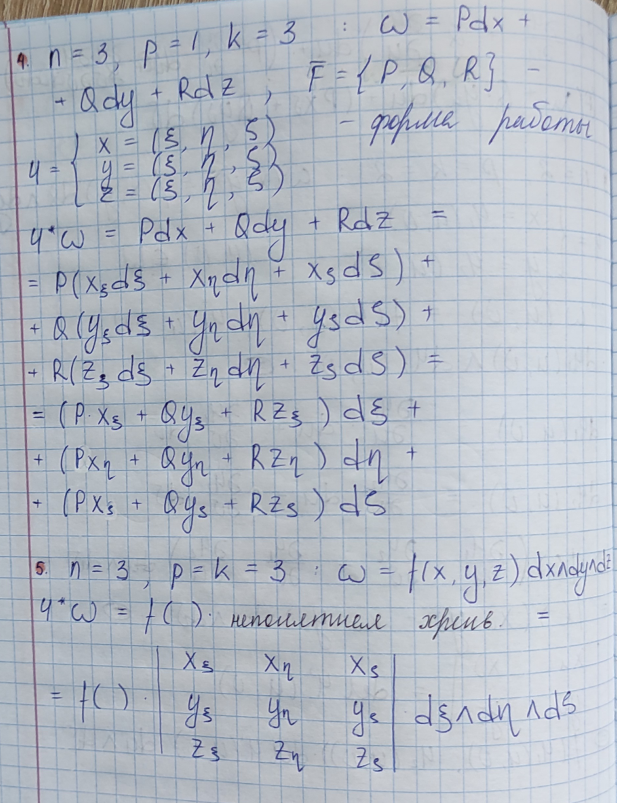 4. n = 3, p = 1, k = 3 : ω = Pdx +
+ Qdy + Rdz, F̅ = {P, Q, R} -
- форма работы
φ = { x = (ξ, η, ζ)
y = (ξ, η, ζ)
z = (ξ, η, ζ)
φ*ω = Pdx + Qdy + Rdz =
= P(x_ξ dξ + x_η dη + x_ζ dζ) +
+ Q(y_ξ dξ + y_η dη + y_ζ dζ) +
+ R(z_ξ dξ + z_η dη + z_ζ dζ) =
= (P·x_ξ + Qy_ξ + Rz_ξ) dξ +
+ (Px_η + Qy_η + Rz_η) dη +
+ (Px_ζ + Qy_ζ + Rz_ζ) dζ
5. n = 3, p = k = 3 : ω = f(x, y, z) dx∧dy∧dz
φ*ω = f( )· непонятная хрень. =
= f( ) · | x_ξ x_η x_ζ |
| y_ξ y_η y_ζ | dξ∧dη∧dζ
| z_ξ z_η z_ζ |